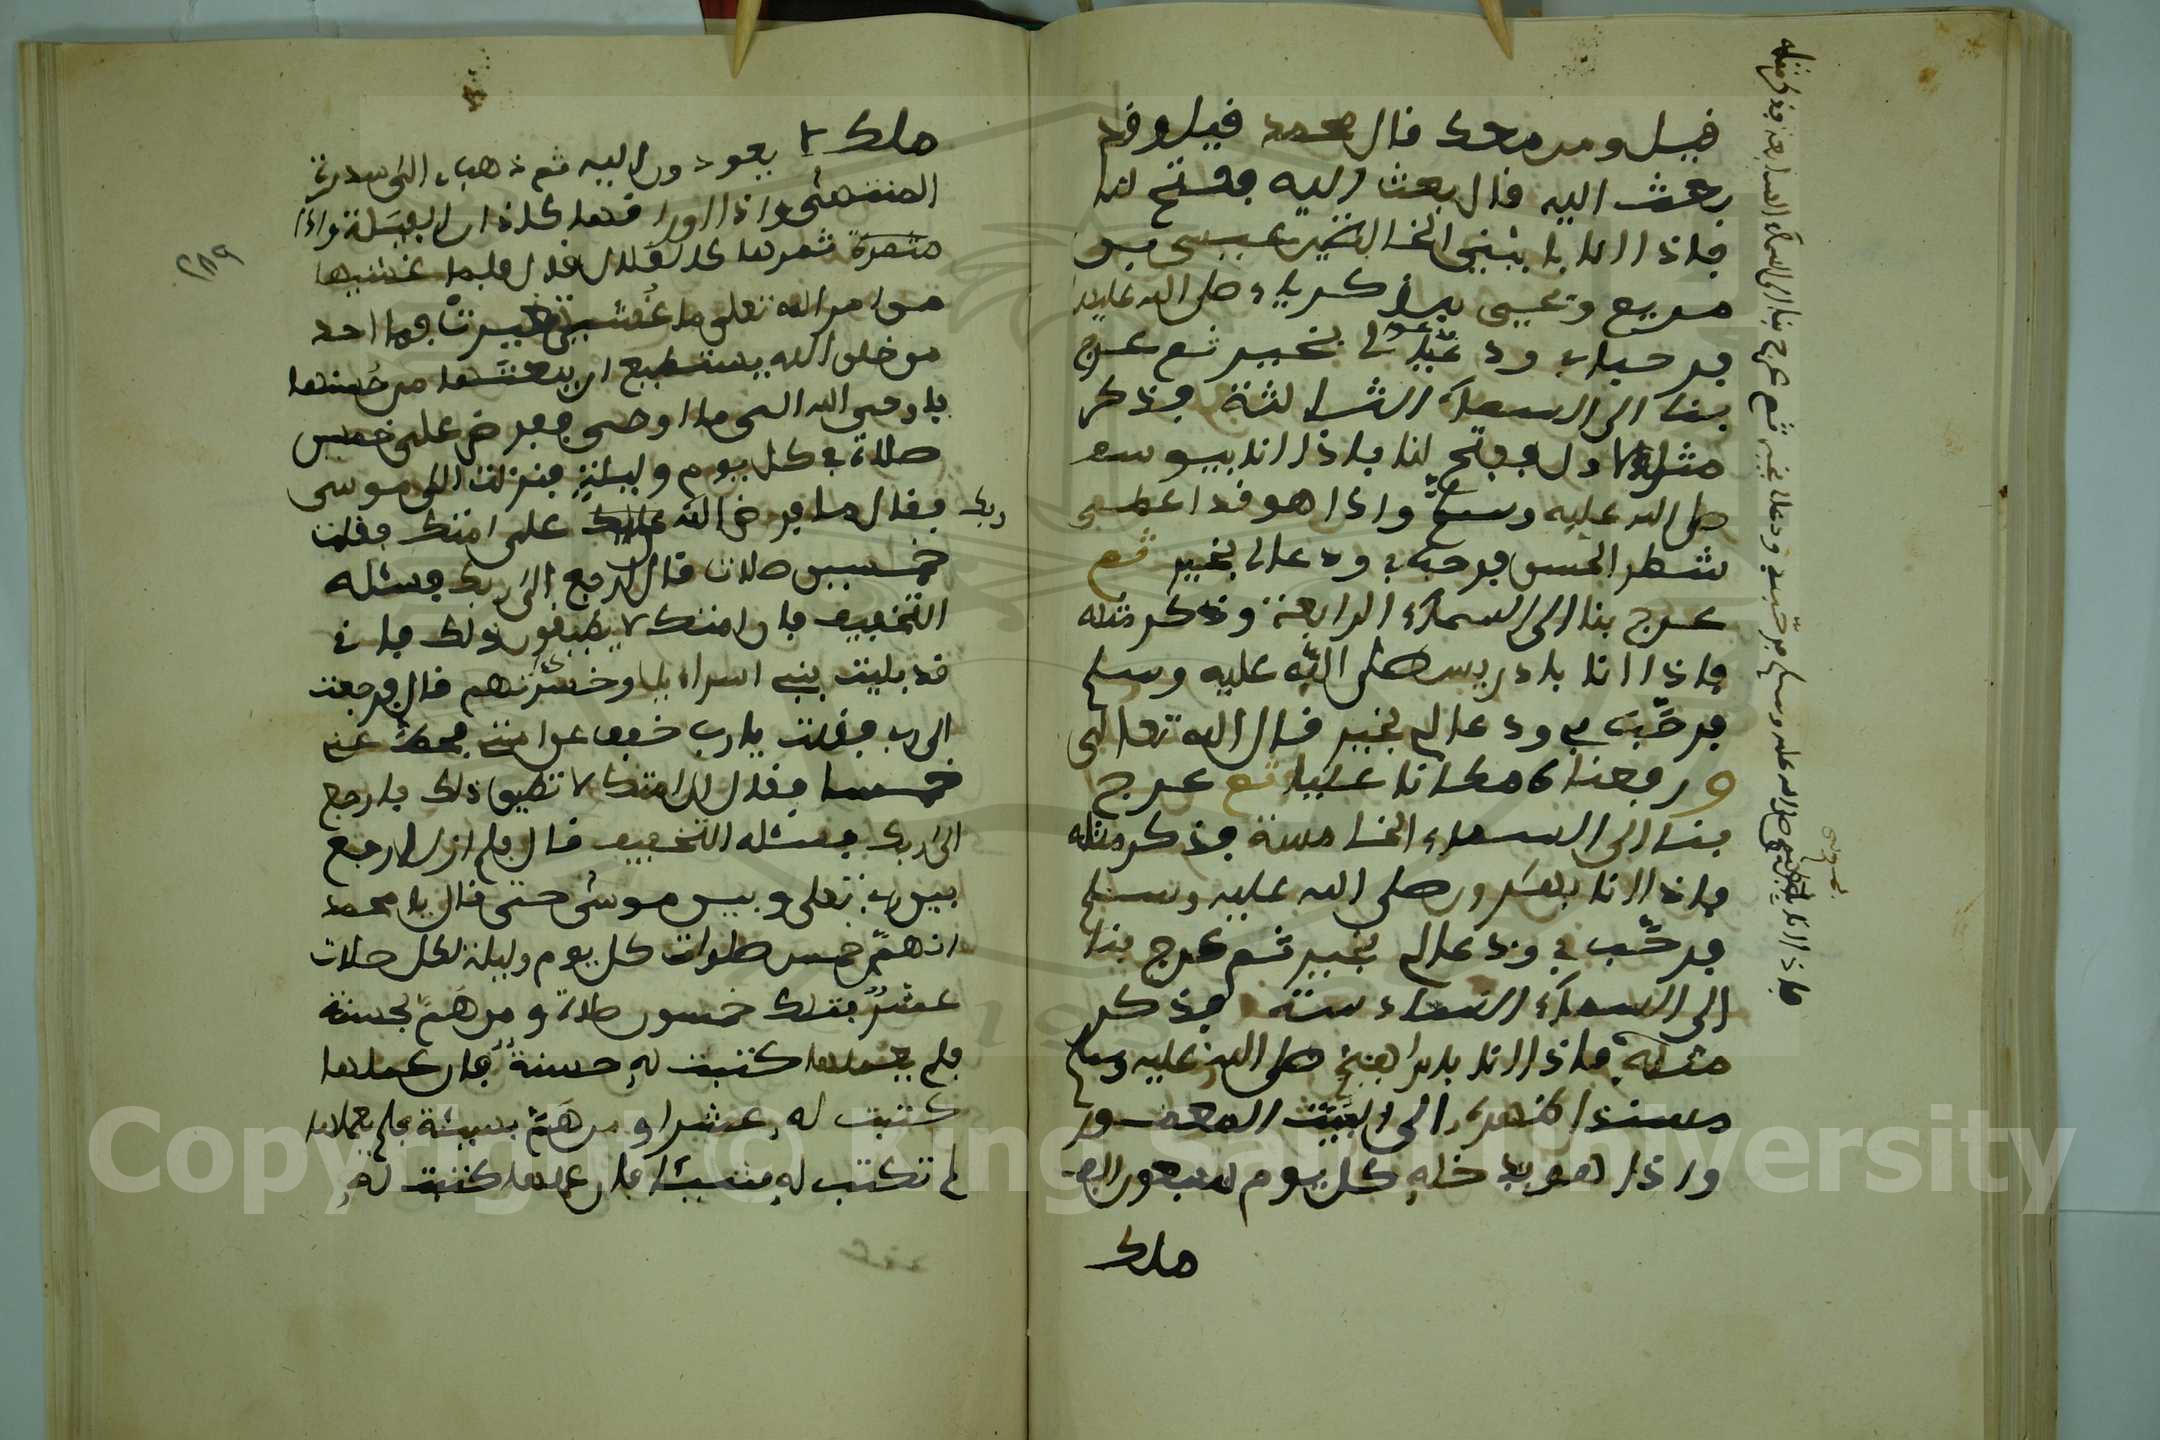 قيل ومن معك قال محمد قيل وقد
بعث اليه قال بعث اليه ففتح لنا
فاذا انا بابني الخالة عيسى بن
مريم ويحيى بن زكرياء صلى الله عليهما
فرحبا بي ودعوا لي بخير ثم عرج
بنا الى السماء الثالثة فذكر
مثل الاول ففتح لنا فاذا انا بيوسف
صلى الله عليه وسلم واذا هو قد اعطى
شطر الحسن فرحب بي ودعا لي بخير ثم
عرج بنا الى السماء الرابعة وذكر مثله
فاذا انا بادريس صلى الله عليه وسلم
فرحب بي ودعا لي بخير قال الله تعالى
ورفعناه مكانا عليا ثم عرج
بنا الى السماء الخامسة فذكر مثله
فاذا انا بهارون صلى الله عليه وسلم
فرحب بي ودعا لي بخير ثم عرج بنا
الى السماء السادسة فذكر
مثله فاذا انا بابراهيم صلى الله عليه وسلم
مسندا ظهره الى البيت المعمور
واذا هو يدخله كل يوم سبعون الف
ملك
فاذا انا بموسى صلى الله عليه وسلم فرحب بي ودعا لي بخير ثم عرج بنا الى السماء السابعة فذكر مثله
ملك لا يعودون اليه ثم ذهب بي الى سدرة
المنتهى واذا اوراقها كاذان الفيلة واذا
ثمرها كالقلال قال فلما غشيها
من امر الله تعلى ما غشى تغيرت فما احد
من خلق الله يستطيع ان ينعتها من حسنها
فاوحى الله الي ما اوحى ففرض علي خمسين
صلاة في كل يوم وليلة فنزلت الى موسى
فقال ما فرض ربك على امتك فقلت
خمسين صلاة قال ارجع الى ربك فسئله
التخفيف فان امتك لا يطيقون ذلك فاني
قد بليت بني اسراءيل وخبرتهم قال فرجعت
الى ربي فقلت يا رب خفف عن امتي فحط عني
خمسا فقال ان امتك لا تطيق ذلك فارجع
الى ربك فسئله التخفيف قال فلم ازل ارجع
بين ربي تعلى وبين موسى حتى قال يا محمد
انهن خمس صلوات كل يوم وليلة لكل صلاة
عشر فتلك خمسون صلاة ومن هم بحسنة
فلم يعملها كتبت له حسنة فان عملها
كتبت له عشرا ومن هم بسيئة فلم يعملها
لم تكتب له شيئا فان عملها كتبت له
Copyright © King Saud University